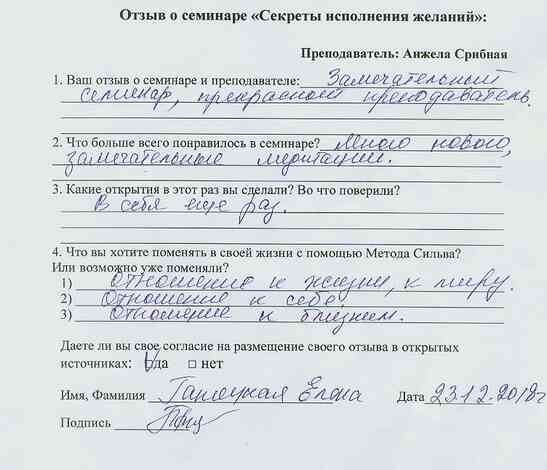 Отзыв о семинаре «Секреты исполнения желаний»:
Преподаватель: Анжела Срибная
1. Ваш отзыв о семинаре и преподавателе: Замечательный
семинар, прекрасный преподаватель.
2. Что больше всего понравилось в семинаре? Много нового,
замечательные медитации.
3. Какие открытия в этот раз вы сделали? Во что поверили?
В себя еще раз.
4. Что вы хотите поменять в своей жизни с помощью Метода Сильва?
Или возможно уже поменяли?
1) отношение к жизни, к миру.
2) Отношение к себе
3) Отношение к близким.
Даете ли вы свое согласие на размещение своего отзыва в открытых
источниках: да □ нет
Имя, Фамилия Елена Дата 23.12.2018г
Подпись